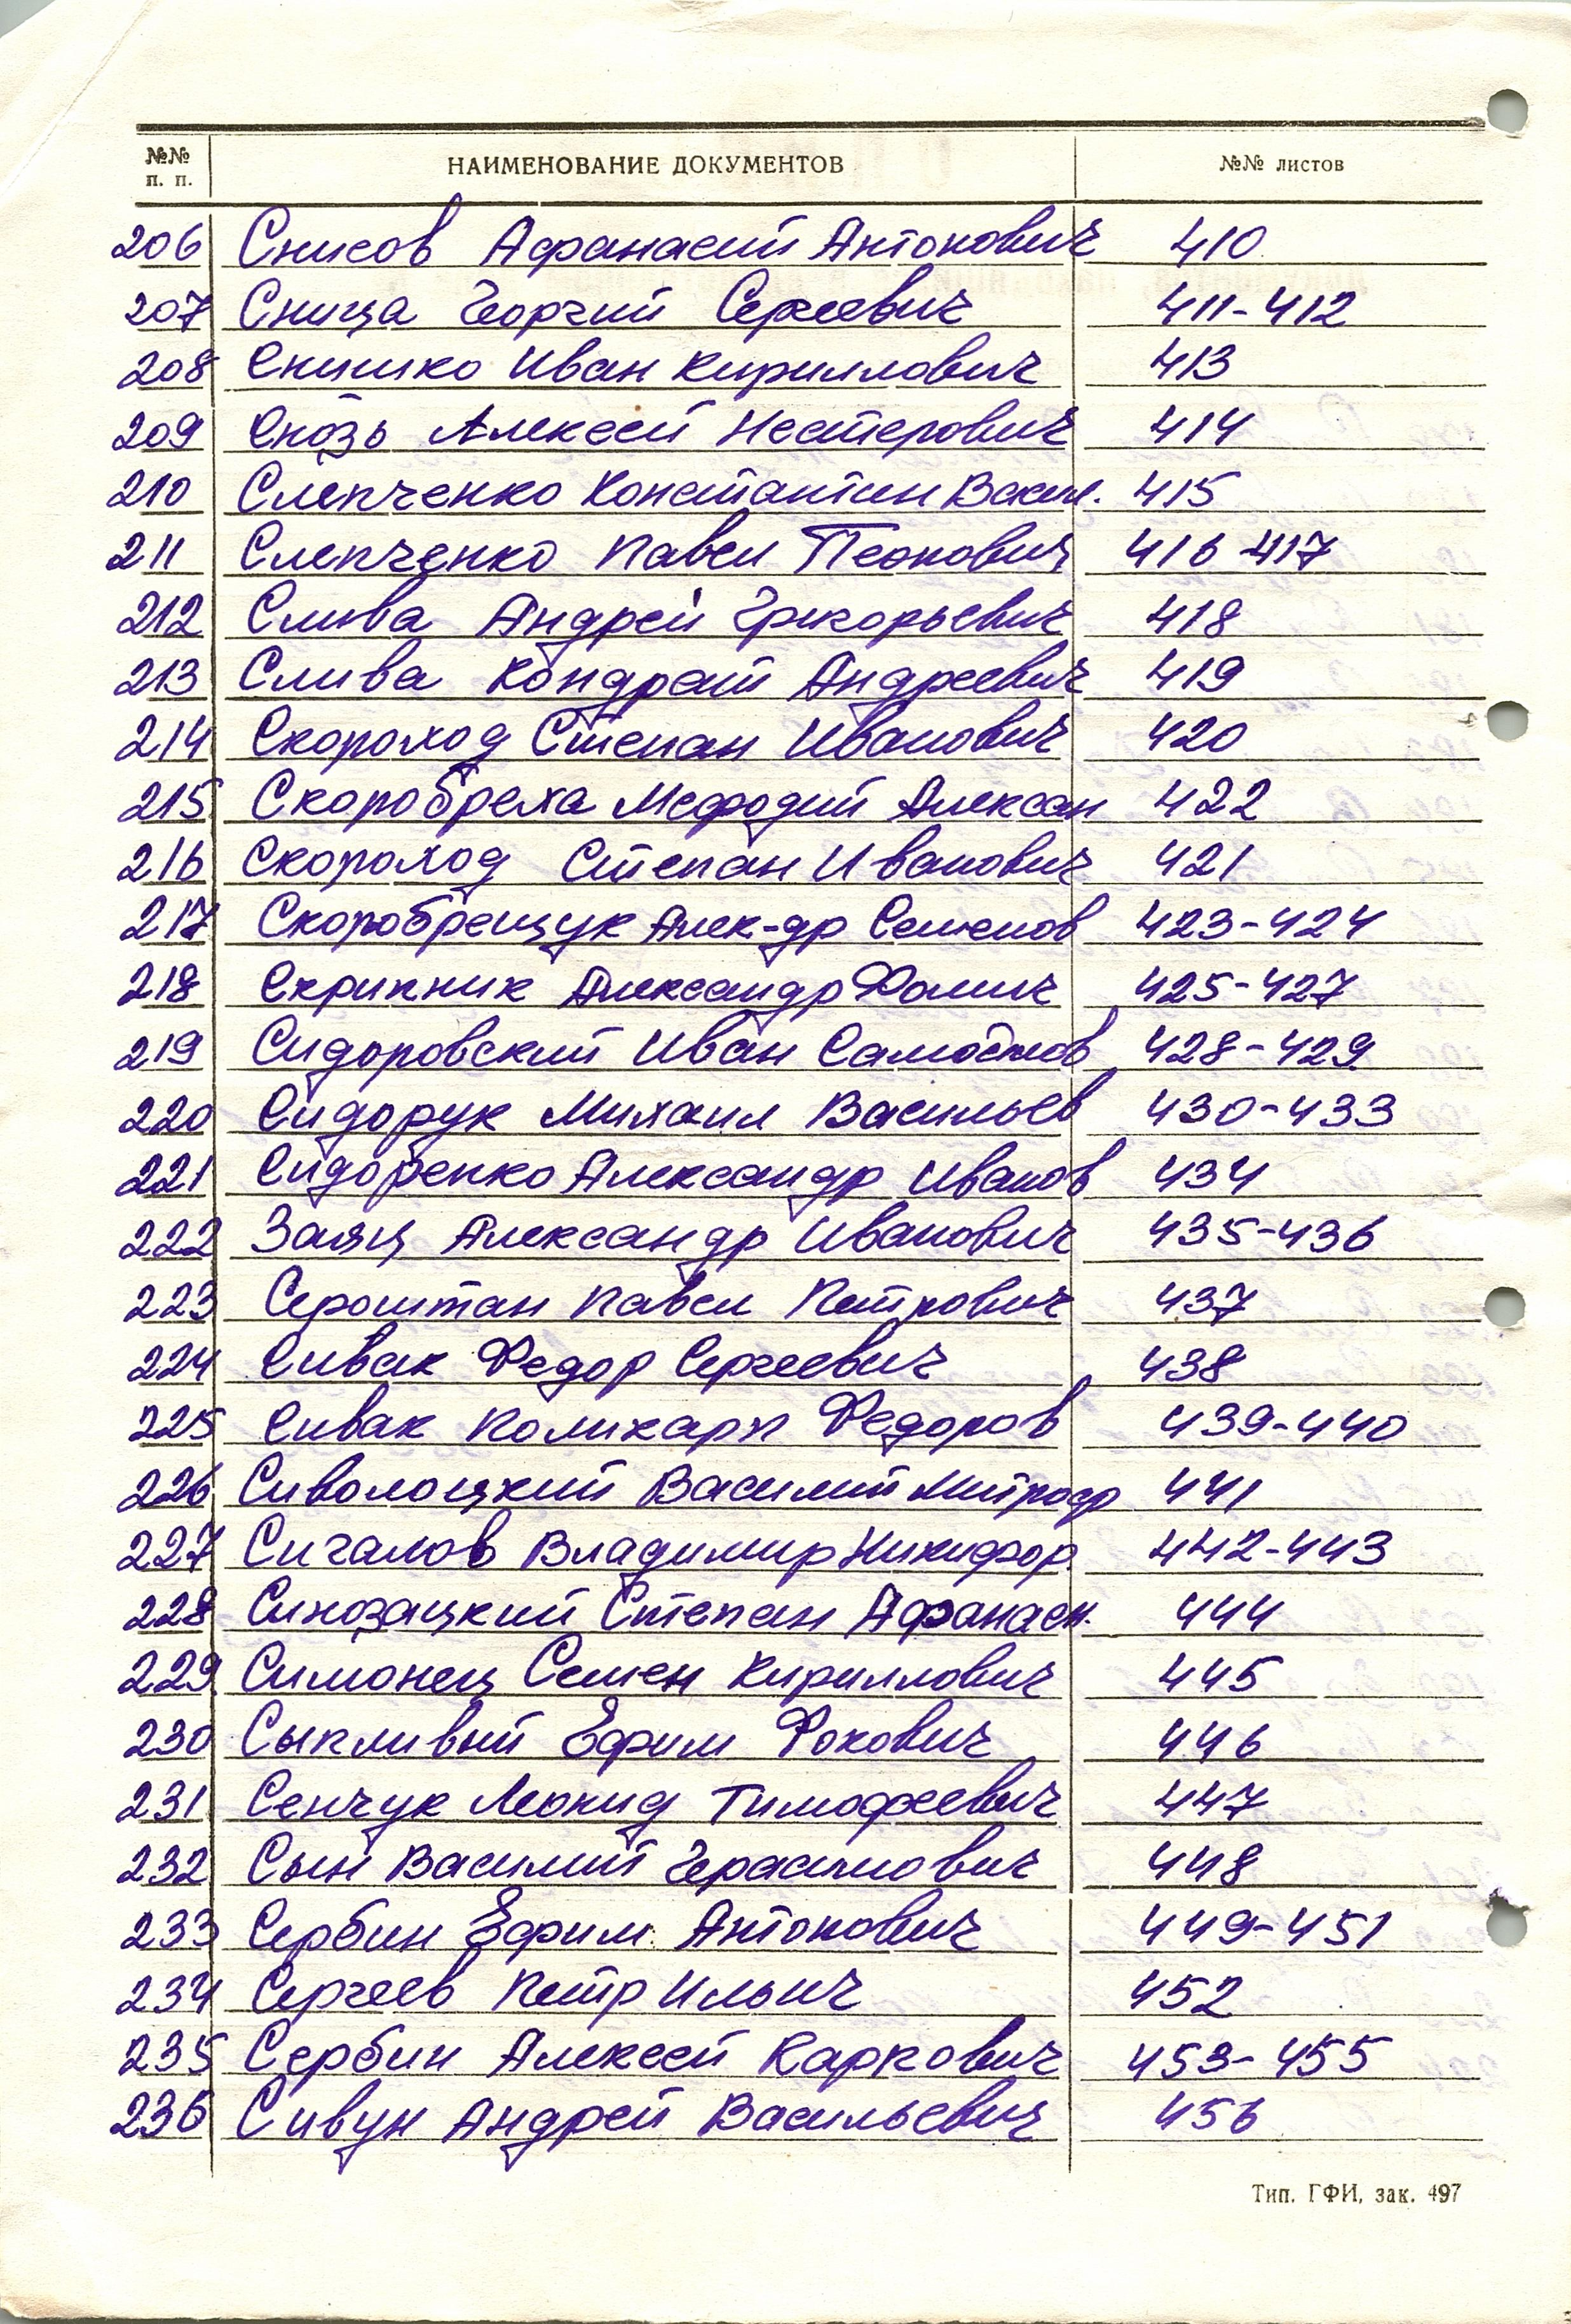 №№ п. п. НАИМЕНОВАНИЕ ДОКУМЕНТОВ №№ листов
206 Снисов Афанасий Антонович 410
207 Сница Георгий Сергеевич 411-412
208 Снишко Иван Кириллович 413
209 Снозь Алексей Нестерович 414
210 Слепченко Константин Васил. 415
211 Слепченко Павел 416-417
212 Слива Андрей Григорьевич 418
213 Слива Кондрат Андреевич 419
214 Скороход Степан Иванович 420
215 Скоробреха Мефодий Алексан 422
216 Скороход Степан Иванович 421
217 Скоробрещук Алек-др Семенов 423-424
218 Скрипник Александр Фомич 425-427
219 Сидоровский Иван 428-429
220 Сидорук Михаил Васильев 430-433
221 Сидоренко Александр Иванов 434
222 Заяц Александр Иванович 435-436
223 Сероштан Павел Петрович 437
224 Сивак Федор Сергеевич 438
225 Сивак Поликарп Федоров 439-440
226 Сиволоцкий Василий Митроф 441
227 Сигалов Владимир Никифор. 442-443
228 Синозацкий Степан Афанасн. 444
229 Симонец Семен Кириллович 445
230 Сыпливый Ефим Фокович 446
231 Сенчук Леонид Тимофеевич 447
232 Сын Василий Герасимович 448
233 Сербин Ефим Антонович 449-451
234 Сергеев Петр Ильич 452
235 Сербин Алексей Карпович 453-455
236 Сивун Андрей Васильевич 456
Тип. ГФИ, зак. 497